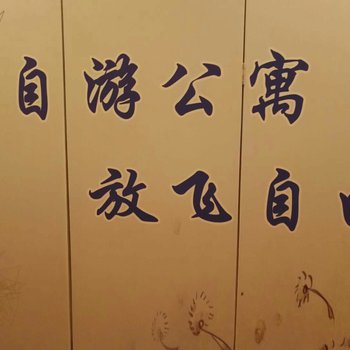 自游公寓
放飞自